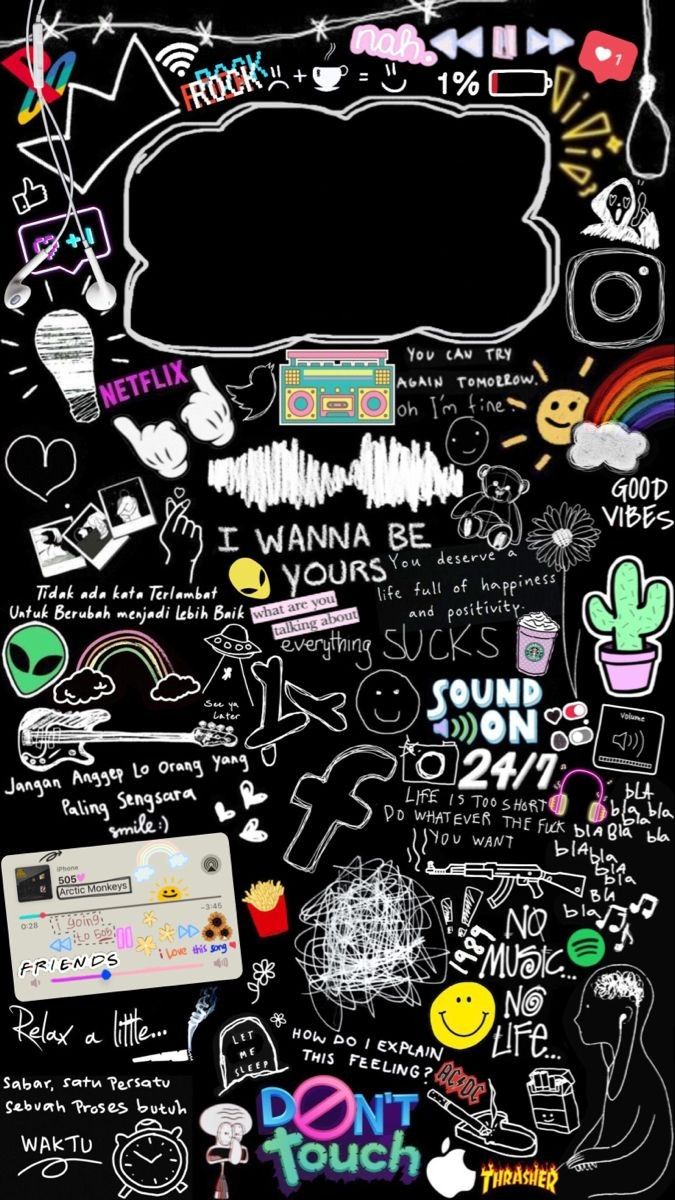 nah.
ROCK
+
=
1%
1
+1
NETFLIX
YOU CAN TRY
AGAIN TOMORROW.
oh I'm fine.
GOOD
VIBES
I WANNA BE
YOURS
You deserve a
life full of happiness
and positivity.
Tidak ada kata Terlambat
Untuk Berubah menjadi Lebih Baik
what are you
talking about
everything SUCKS
See ya
Later
SOUND
ON
24/7
Volume
Jangan Anggep Lo Orang yang
Paling Sengsara
smile:)
LIFE IS TOO SHORT
DO WHATEVER THE FUCK
YOU WANT
bLA
bla bla
bla
blA Bla
bla
blA
bla
bla
BLA
bla
iPhone
505
Arctic Monkeys
0:28
-3:45
I going
to 505
i Love this song
FRIENDS
1989
NO
MUSIC...
NO
LIFE...
Relax a little...
LET
ME
SLEEP
HOW DO I EXPLAIN
THIS FEELING?
AC/DC
Sabar, satu Persatu
sebuah Proses butuh
WAKTU
DON'T
touch
THRASHER